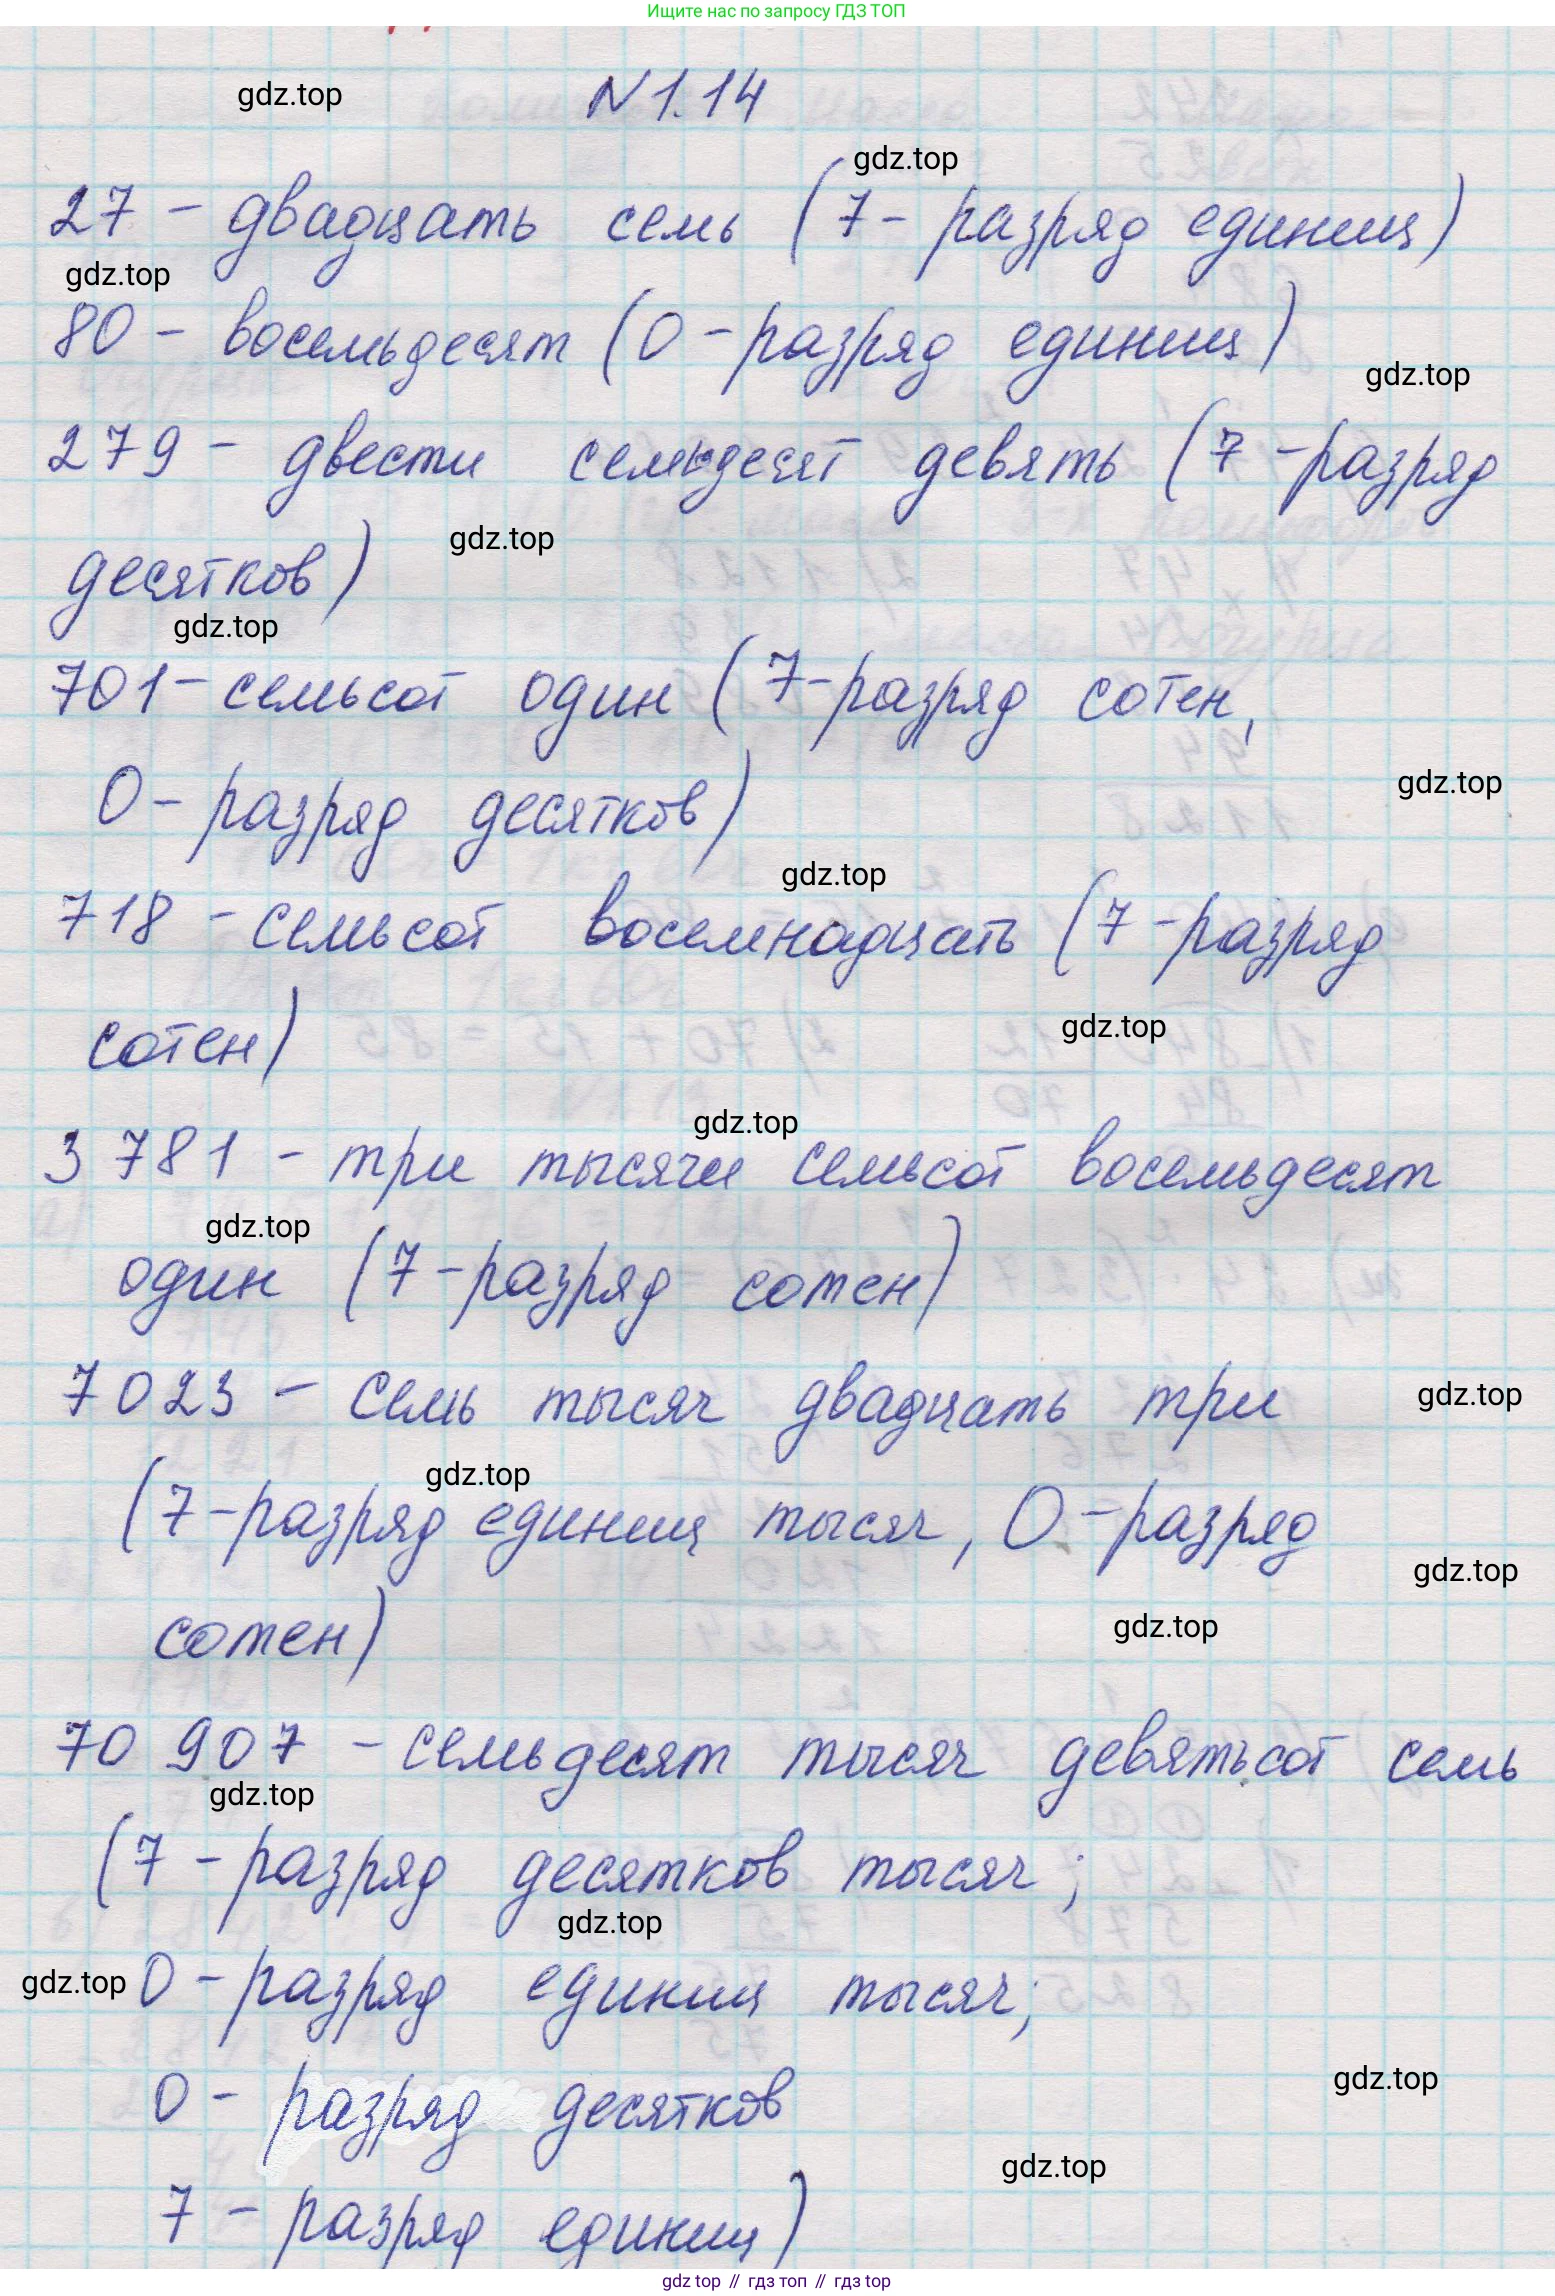 Ищите нас по запросу ГДЗ ТОП
N 1.14
gdz.top
gdz.top
27 - двадцать семь (7 - разряд единиц)
gdz.top
80 - восемьдесят (0 - разряд единиц)
gdz.top
279 - двести семьдесят девять (7 - разряд
десятков)
gdz.top
gdz.top
701 - семьсот один (7 - разряд сотен,
0 - разряд десятков)
gdz.top
gdz.top
718 - семьсот восемнадцать (7 - разряд
сотен)
gdz.top
gdz.top
3 781 - три тысячи семьсот восемьдесят
gdz.top
один (7 - разряд сотен)
7 023 - семь тысяч двадцать три
gdz.top
gdz.top
(7 - разряд единиц тысяч, 0 - разряд
gdz.top
сотен)
gdz.top
70 907 - семьдесят тысяч девятьсот семь
gdz.top
(7 - разряд десятков тысяч;
gdz.top
gdz.top
0 - разряд единиц тысяч;
0 - разряд десятков
gdz.top
gdz.top
7 - разряд единиц)
gdz top // гдз топ // gdz top